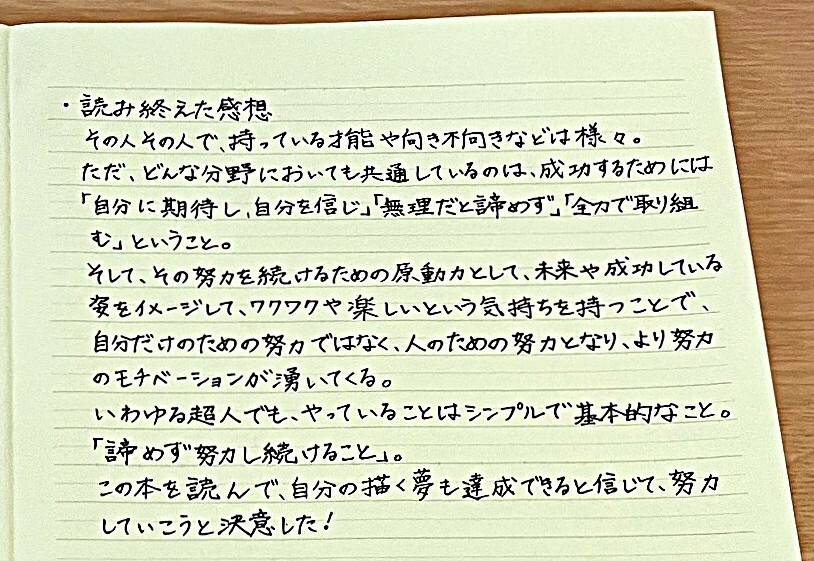 ・読み終えた感想
その人その人で、持っている才能や向き不向きなどは様々。
ただ、どんな分野においても共通しているのは、成功するためには
「自分に期待し、自分を信じ」「無理だと諦めず」「全力で取り組
む」ということ。
そして、その努力を続けるための原動力として、未来や成功している
姿をイメージして、ワクワクや楽しいという気持ちを持つことで、
自分だけのための努力ではなく、人のための努力となり、より努力
のモチベーションが湧いてくる。
いわゆる超人でも、やっていることはシンプルで基本的なこと。
「諦めず努力し続けること」。
この本を読んで、自分の描く夢も達成できると信じて、努力
していこうと決意した!